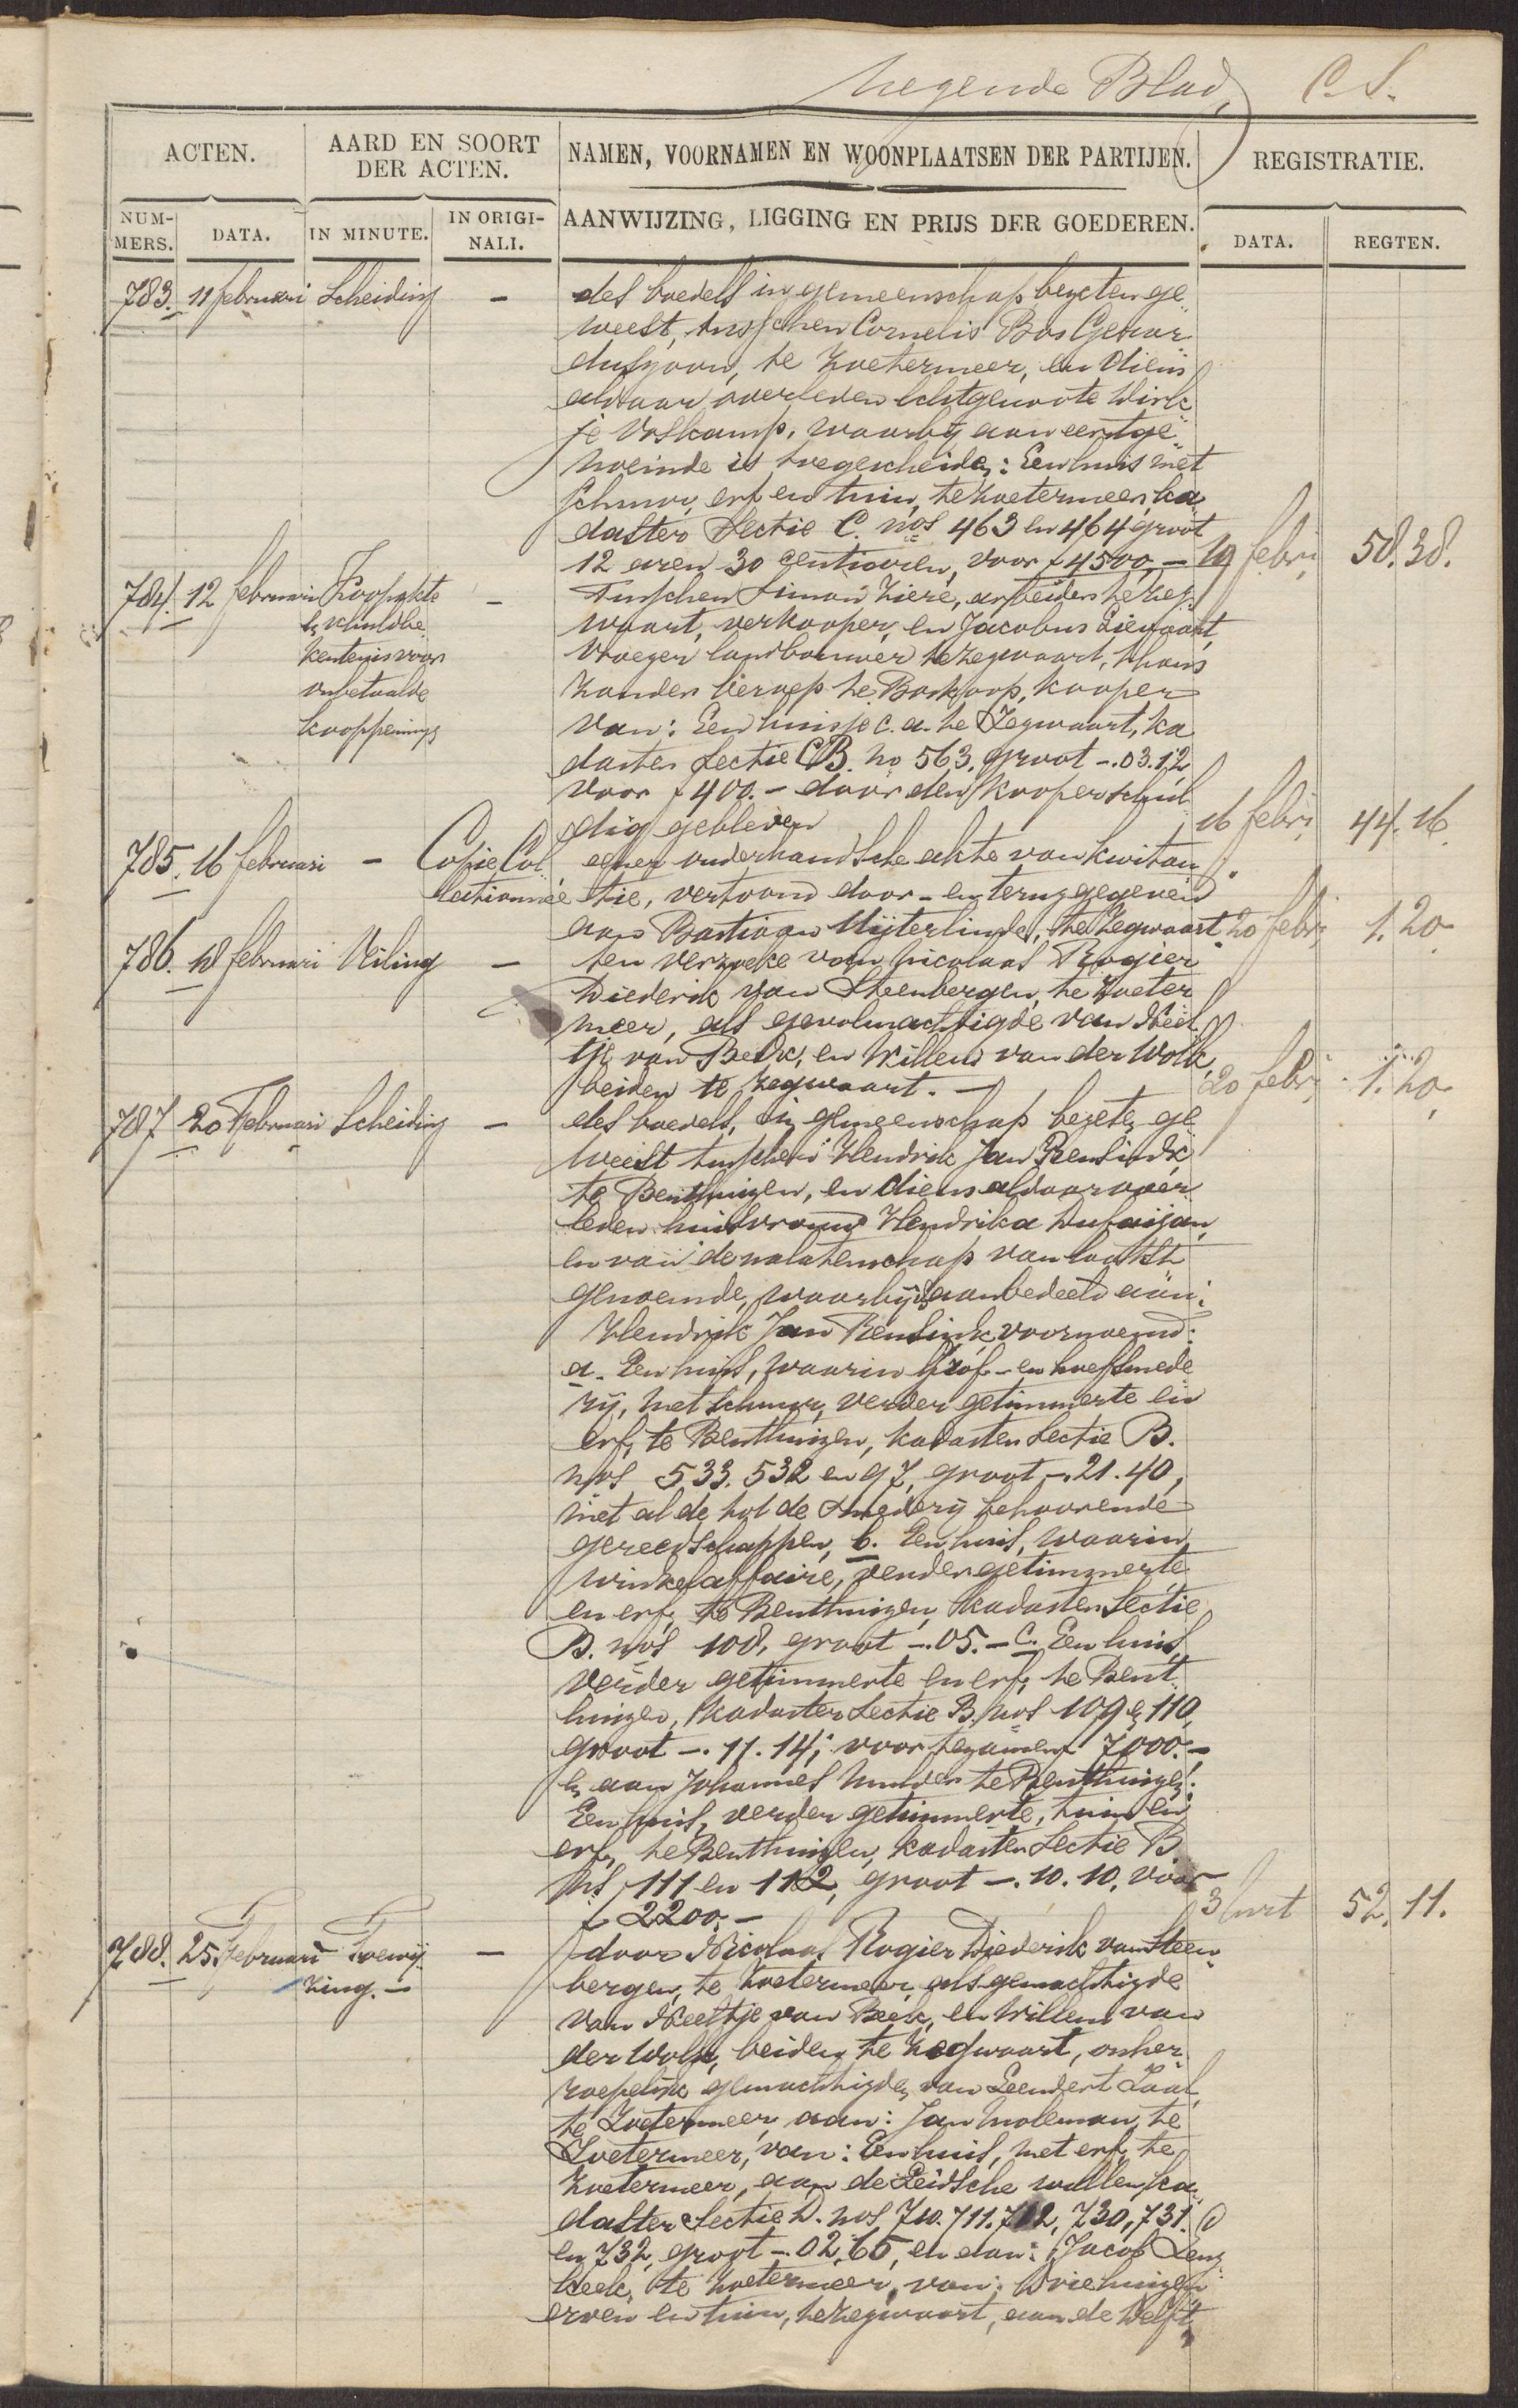 Negende Blad, C. S.
ACTEN.
AARD EN SOORT
DER ACTEN.
NAMEN, VOORNAMEN EN WOONPLAATSEN DER PARTIJEN.
REGISTRATIE.
NUM-
MERS.
DATA.
IN MINUTE.
IN ORIGI-
NALI.
AANWIJZING, LIGGING EN PRIJS DER GOEDEREN.
DATA.
REGTEN.
783. 11 februari Scheiding - des boedels in gemeenschap bezeten ge
weest, tusschen Cornelis Bos
te Zoetermeer, en diens
aldaar overleden echtgenoote Dirk
je Voskamp, waarbij aan eerstge
noemde is toegescheiden: Een huis met
schuur, erf en tuin, te Zoetermeer, ka
daster Sectie C. nos 463 en 464 groot
12 aren 30 centiaren, voor f 4500,- 19 febri 58.38.
784. 12 februari Koopakte - Tusschen Simon Ziere, arbeider te Zeg
en schuldbe waart, verkooper, en Jacobus
kentenis voor vroeger landbouwer te Zegwaart, thans
onbetaalde zonder beroep te Boskoop, kooper
kooppenings van: Een huisje c.a. te Zegwaart, ka
daster Sectie B. no 563. groot -.03.12
voor f 400.- door den kooper schul
dig gebleven 16 febri 44.16.
785. 16 februari - Copie Col eener onderhandsche akte van kwitan
lectionnée tie, vertoond door - en teruggegeven
aan Bastiaan Uijterlinde, te Zegwaart 20 febri 1.20
786. 18 februari Veiling - ten verzoeke van Nicolaas Rogier
Diederik van Steenbergen, te Zoeter
meer, als gevolmachtigde van Neel
tje van Beek, en Willem van der Wolk,
beiden te Zegwaart.- 20 febri 1.20.
787. 20 Februari Scheiding - des boedels, in gemeenschap bezeten ge
weest tusschen Hendrik Jan Rensink
te Benthuizen, en diens aldaar over
leden huisvrouw Hendrika Dufaijan,
en van de nalatenschap van laatst
genoemde, waarbij is aanbedeeld aan:
Hendrik Jan Rensink voornoemd:
a. Een huis, waarin Grof- en hoefsmede
rij, met schuur, verder getimmerte en
erf, te Benthuizen, kadaster Sectie B.
nos 533. 532 en 97, groot -.21.40,
met al de tot de smederij behoorende
gereedschappen, b. Een huis, waarin
winkelaffaire, verder getimmerte
en erf, te Benthuizen, kadaster Sectie
B. nos 108, groot -.05.- c. Een huis,
verder getimmerte en erf, te Bent
huizen, kadaster Sectie B. nos 109 en 110,
groot -.11.14; voor tezamen f 7000.-
en aan Johannes Mulder te Benthuizen:
Een huis, verder getimmerte, tuin en
erf, te Benthuizen, kadaster Sectie B.
nos 111 en 112, groot -.10.10, voor
f 2200.- 3 Mrt 52.11.
788. 25 Februari Toewij - door Nicolaas Rogier Diederik van Steen
zing.- bergen, te Zoetermeer, als gemachtigde
van Neeltje van Beek, en Willem van
der Wolk, beiden te Zegwaart, onher
roepelijk gemachtigden van Leendert Laal,
te Zoetermeer, aan: Jan Moleman, te
Zoetermeer, van: Een huis, met erf, te
Zoetermeer, aan de Leidsche wallen, ka
daster Sectie D. nos 710. 711. 712, 730, 731.
en 732, groot -.02.65, en aan: Jacob Leng
keek, te Zoetermeer, van: Drie huizen
erven en tuin, te Zegwaart, aan de Delft